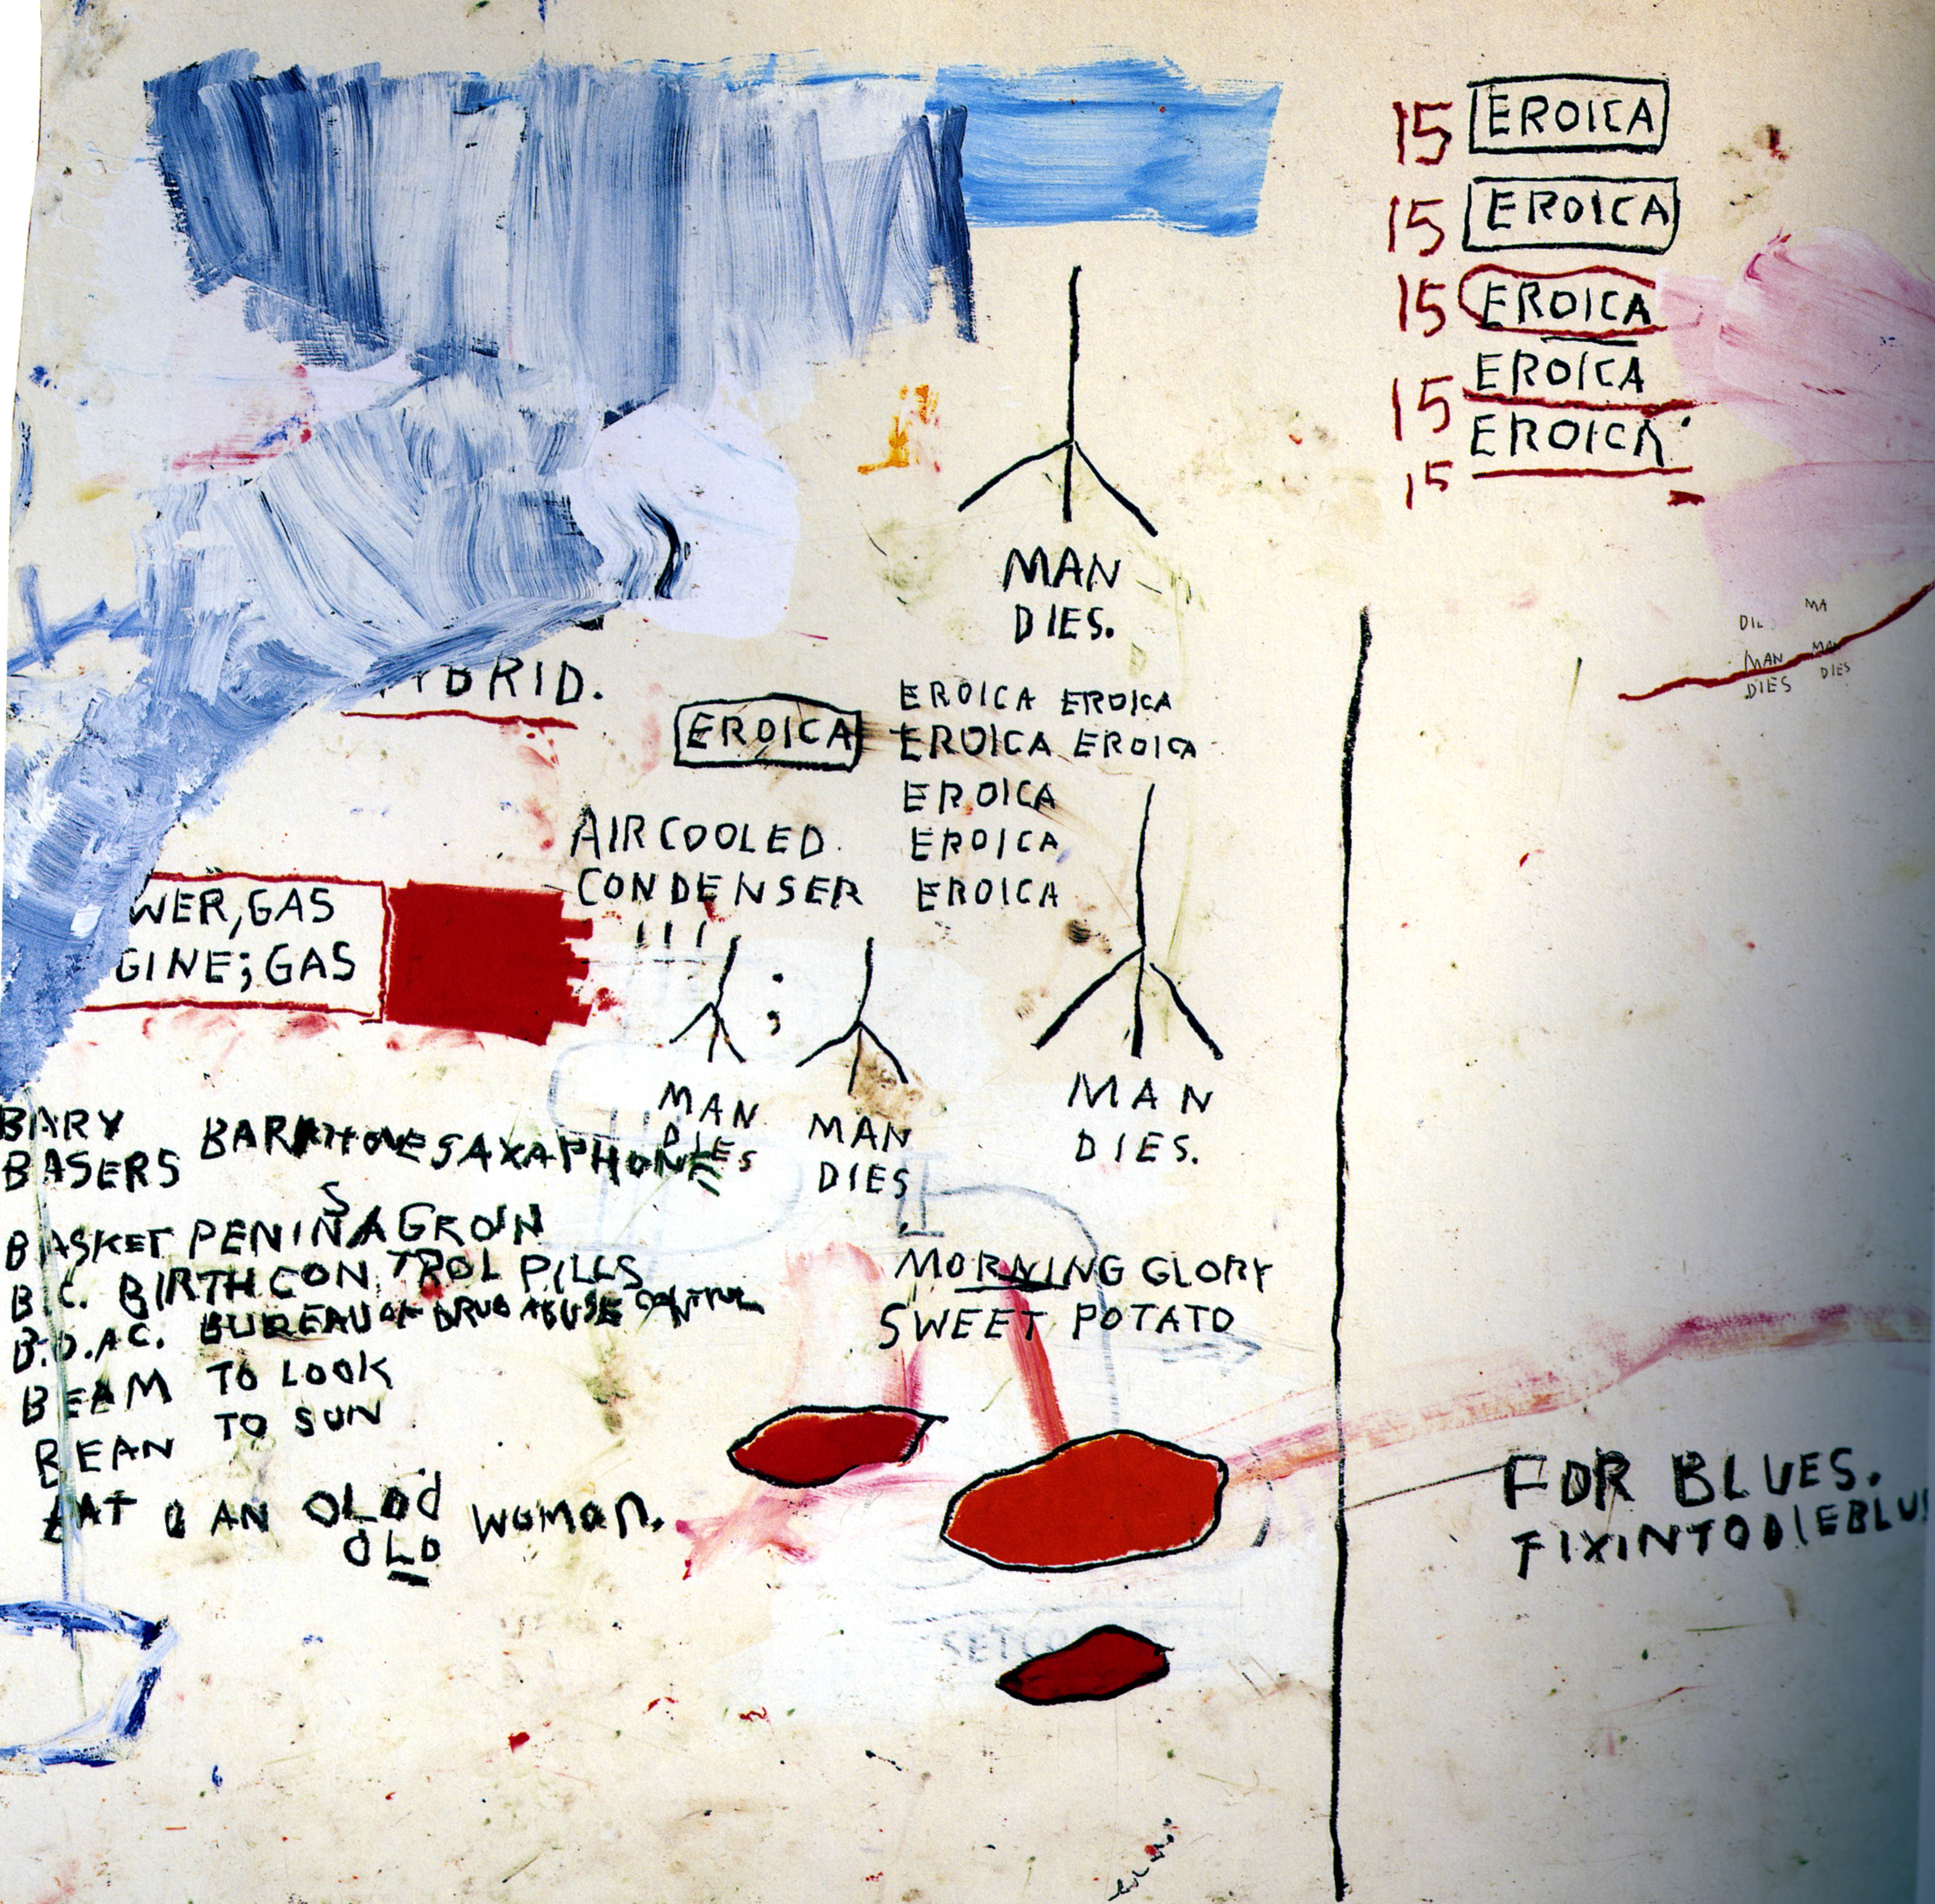 15 EROICA
15 EROICA
15 EROICA
15 EROICA
15 EROICA
MAN
DIES.
MA
DIE
MAN MAN
DIES DIES
BRID.
EROICA
EROICA EROICA
EROICA EROICA
EROICA
EROICA
EROICA
AIRCOOLED
CONDENSER
WER, GAS
GINE; GAS
;
MAN
DIES
MAN
DIES
MAN
DIES.
BARY
BASERS BARITONE SAXAPHONE
S
BASKET PENIN AGROIN
B.C. BIRTHCONTROL PILLS
B.D.AC. BUREAU OF DRUG ABUSE CONTROL
BEAM TO LOOK
BEAN TO SUN
EAT AN OLOD WOMAN.
OLD
MORNING GLORY
SWEET POTATO
FOR BLUES.
FIXINTODIEBLU